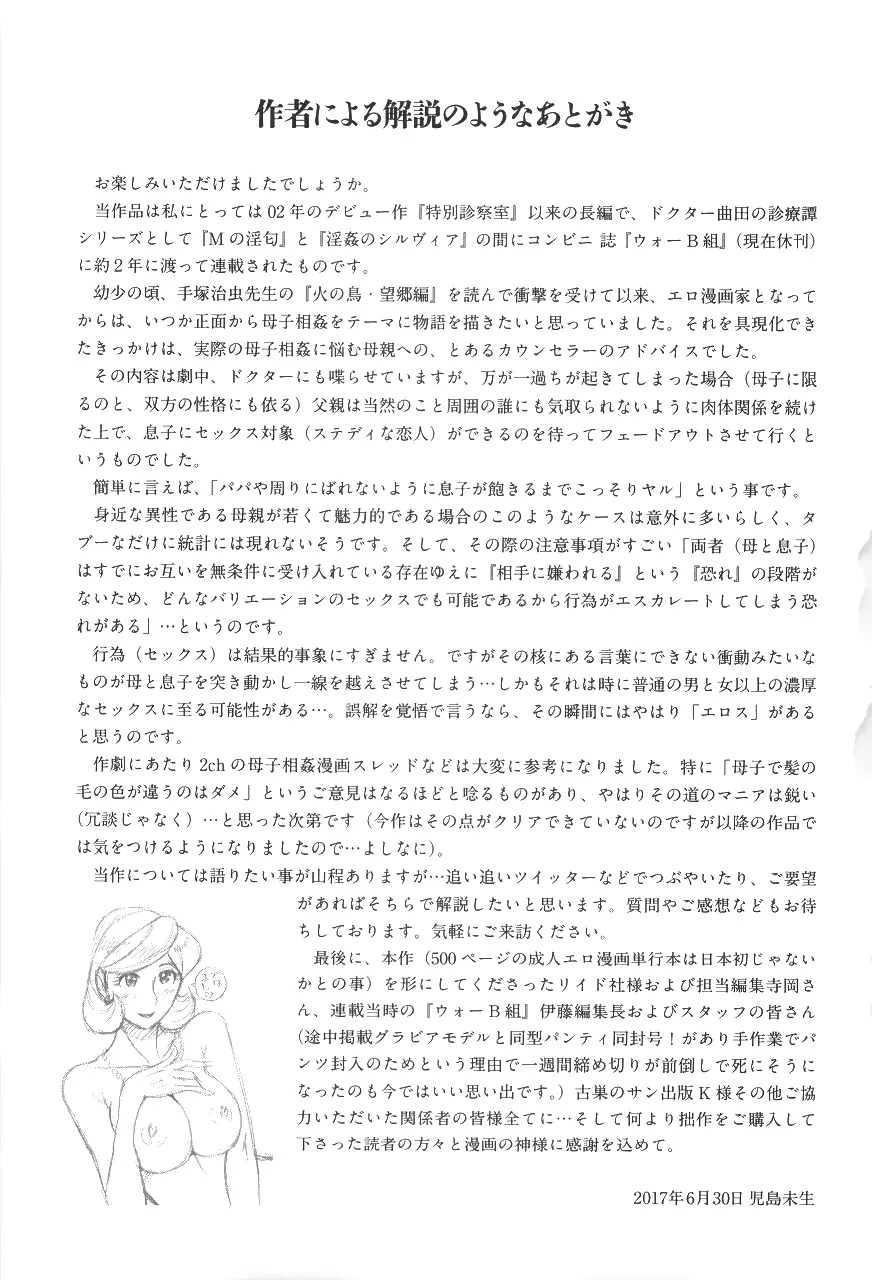 作者による解説のようなあとがき
お楽しみいただけましたでしょうか。
当作品は私にとっては02年のデビュー作『特別診察室』以来の長編で、ドクター曲田の診療譚
シリーズとして『Mの淫匂』と『淫姦のシルヴィア』の間にコンビニ 誌『ウォーB組』(現在休刊)
に約2年に渡って連載されたものです。
幼少の頃、手塚治虫先生の『火の鳥・望郷編』を読んで衝撃を受けて以来、エロ漫画家となって
からは、いつか正面から母子相姦をテーマに物語を描きたいと思っていました。それを具現化でき
たきっかけは、実際の母子相姦に悩む母親への、とあるカウンセラーのアドバイスでした。
その内容は劇中、ドクターにも喋らせていますが、万が一過ちが起きてしまった場合（母子に限
るのと、双方の性格にも依る）父親は当然のこと周囲の誰にも気取られないように肉体関係を続け
た上で、息子にセックス対象（ステディな恋人）ができるのを待ってフェードアウトさせて行くと
いうものでした。
簡単に言えば、「パパや周りにばれないように息子が飽きるまでこっそりヤル」という事です。
身近な異性である母親が若くて魅力的である場合のこのようなケースは意外に多いらしく、タ
ブーなだけに統計には現れないそうです。そして、その際の注意事項がすごい「両者（母と息子）
はすでにお互いを無条件に受け入れている存在ゆえに『相手に嫌われる』という『恐れ』の段階が
ないため、どんなバリエーションのセックスでも可能であるから行為がエスカレートしてしまう恐
れがある」…というのです。
行為（セックス）は結果的事象にすぎません。ですがその核にある言葉にできない衝動みたいな
ものが母と息子を突き動かし一線を越えさせてしまう…しかもそれは時に普通の男と女以上の濃厚
なセックスに至る可能性がある…。誤解を覚悟で言うなら、その瞬間にはやはり「エロス」がある
と思うのです。
作劇にあたり2chの母子相姦漫画スレッドなどは大変に参考になりました。特に「母子で髪の
毛の色が違うのはダメ」というご意見はなるほどと唸るものがあり、やはりその道のマニアは鋭い
(冗談じゃなく）…と思った次第です（今作はその点がクリアできていないのですが以降の作品で
は気をつけるようになりましたので…よしなに)。
当作については語りたい事が山程ありますが…追い追いツイッターなどでつぶやいたり、ご要望
があればそちらで解説したいと思います。質問やご感想などもお待
ちしております。気軽にご来訪ください。
最後に、本作（500ページの成人エロ漫画単行本は日本初じゃない
かとの事）を形にしてくださったリイド社様および担当編集寺岡さ
ん、連載当時の『ウォーB組』伊藤編集長およびスタッフの皆さん
(途中掲載グラビアモデルと同型パンティ同封号！があり手作業でパ
ンツ封入のためという理由で一週間締め切りが前倒しで死にそうに
なったのも今ではいい思い出です。）古巣のサン出版K様その他ご協
力いただいた関係者の皆様全てに…そして何より拙作をご購入して
下さった読者の方々と漫画の神様に感謝を込めて。
2017年6月30日 児島未生